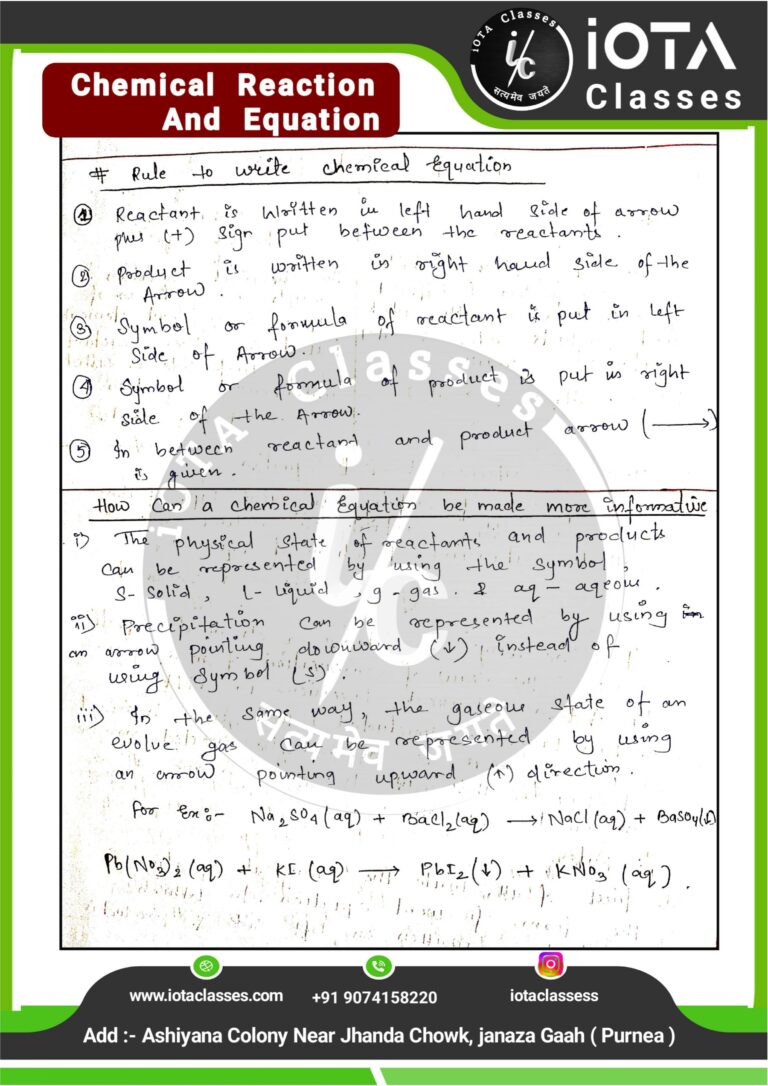 iOTA Classes
i/c
सत्यमेव जयते
iOTA
Classes
Chemical Reaction
And Equation
# Rule to write chemical Equation
① Reactant is Written in left hand side of arrow
plus (+) sign put between the reactants.
② Product is written in right hand side of the
Arrow.
③ Symbol or formula of reactant is put in left
side of Arrow.
④ Symbol or formula of product is put in right
side of the Arrow.
⑤ In between reactant and product arrow (⟶)
is given.
How Can a chemical Equation be made more informative
i) The physical state of reactants and products
can be represented by using the symbol,
S- Solid, L- liquid, g- gas. & aq - aqeous.
ii) Precipitation can be represented by using in
an arrow pointing downward (↓) instead of
using symbol (s).
iii) In the same way, the gaseous state of an
evolve gas can be represented by using
an arrow pointing upward (↑) direction.
for Ex:- Na₂SO₄(aq) + BaCl₂(aq) ⟶ NaCl(aq) + BaSO₄(↓)
Pb(NO₃)₂(aq) + KI(aq) ⟶ PbI₂(↓) + KNO₃(aq).
iOTA Classes
i/c
सत्यमेव जयते
www.iotaclasses.com
+91 9074158220
iotaclassess
Add :- Ashiyana Colony Near Jhanda Chowk, janaza Gaah ( Purnea )